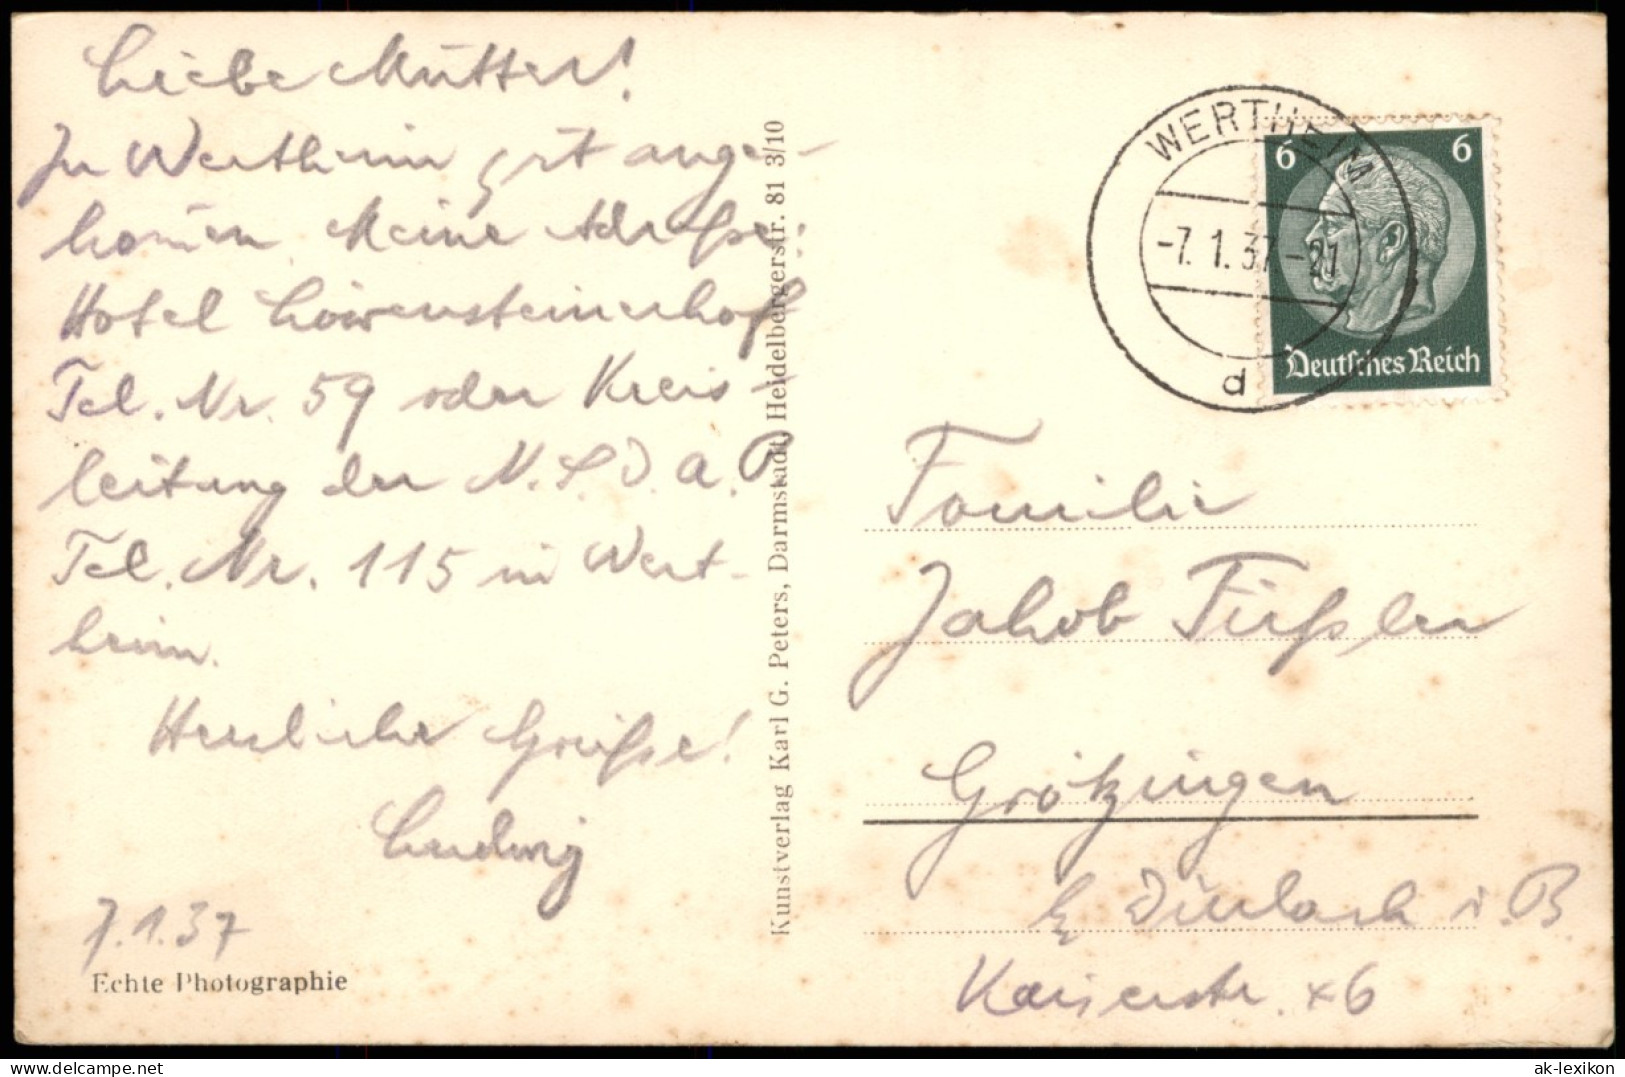 Liebe Mutter!
In Wertheim gut ange-
kommen. Meine Adresse:
Hotel Löwensteinerhof
Tel. Nr. 59 oder Kreis-
leitung der N.S.D.A.P
Tel. Nr. 115 in Wert-
heim.
Herzliche Grüße!
Ludwig
7.1.37
Echte Photographie
Kunstverlag Karl G. Peters, Darmstadt, Heidelbergerstr. 81 3/10
WERTHEIM
-7.1.37-21
d
6 6
Deutsches Reich
Familie
Jakob Füßler
Grötzingen
b/ Durlach i. B.
Kaiserstr. 46
ak-lexikon